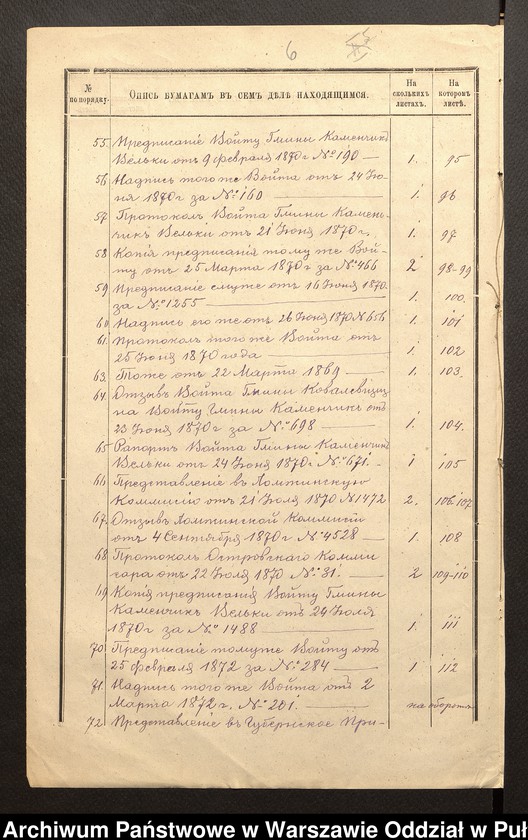 6
№ по порядку.
Опись бумагамъ въ семъ дѣлѣ находящимся.
На сколькихъ листахъ.
На которомъ листѣ.
55. Предписаніе Войту Гмины Каменчикъ
Вельки отъ 9 февраля 1870 г № 190 — 1. 95
56. Надпись того же Войта отъ 24 Iю-
ня 1870 г за № 160 1. 96
57. Протоколъ Войта Гмины Камен-
чикъ Вельки отъ 21 Iюня 1870 г. 1. 97
58 Копія предписанія тому же Вой-
ту отъ 25 Марта 1870 г за № 466 2 98-99
59 Предписаніе ему же отъ 16 Iюня 1870.
за № 1255 1. 100.
60 Надпись его же отъ 26 Iюня 1870 № 656 1. 101
61. Протоколъ того же Войта отъ
25 Iюня 1870 года 1. 102
63. Тоже отъ 22 Марта 1869 — 1. 103.
64. Отзывъ Войта Гмины
на Войту Гмины Каменчикъ отъ
23 Iюня 1870 г за № 698 1. 104.
65 Рапортъ Войта Гмины Каменчикъ
Вельки отъ 24 Iюня 1870 г № 671. 1 105
66 Представленіе въ Ломжинскую
Коммисію отъ 21 Iюля 1870 № 1472 2. 106-107
67. Отзывъ Ломжинской Коммисіи
отъ 4 Сентября 1870 г № 4528 — 1. 108
68 Протоколъ Островскаго Комми
сара отъ 22 Iюля 1870 № 81. 2 109-110
69 Копія предписанія Войту Гмины
Каменчикъ Вельки отъ 24 Iюля
1870 г за № 1488 1. 111
70. Предписаніе тому же Войту отъ
25 февраля 1872 за № 284 1 112
71. Надпись того же Войта отъ 2
Марта 1872 г. № 201. на оборотѣ
72. Представленіе въ Губернское При-
Archiwum Państwowe w Warszawie Oddział w Puł